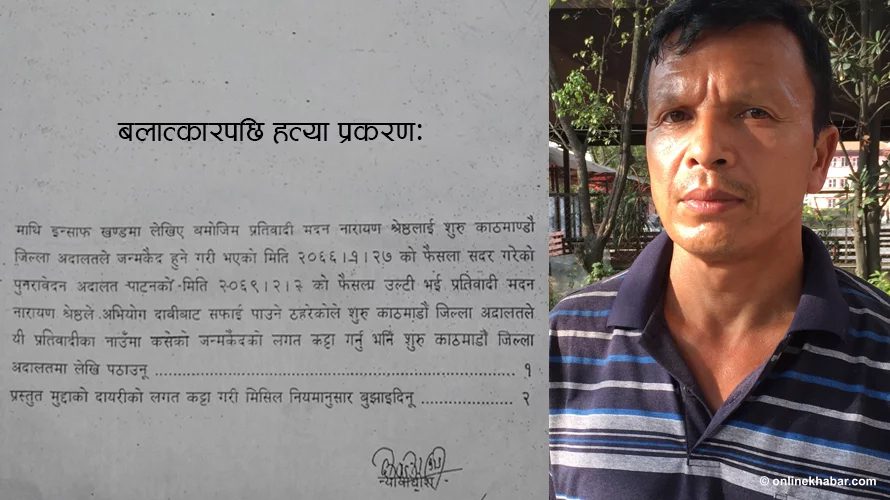 बलात्कारपछि हत्या प्रकरण:
माथि इन्साफ खण्डमा लेखिए बमोजिम प्रतिवादी मदन नारायण श्रेष्ठलाई शुरु काठमाण्डौ
जिल्ला अदालतले जन्मकैद हुने गरी भएको मिति २०६६।१।२७ को फैसला सदर गरेको
पुनरावेदन अदालत पाटनको मिति २०६९।२।२ को फैसला उल्टी भई प्रतिवादी मदन
नारायण श्रेष्ठले अभियोग दाबीबाट सफाई पाउने ठहरेकोले शुरु काठमाडौं जिल्ला अदालतले
यी प्रतिवादीका नाउँमा कसेको जन्मकैदको लगत कट्टा गर्नु भनि शुरु काठमाडौं जिल्ला
अदालतमा लेखि पठाउनू .......................................................................... १
प्रस्तुत मुद्दाको दायरीको लगत कट्टा गरी मिसिल नियमानुसार बुझाइदिनू ................... २
न्यायाधीश
© onlinekhabar.com